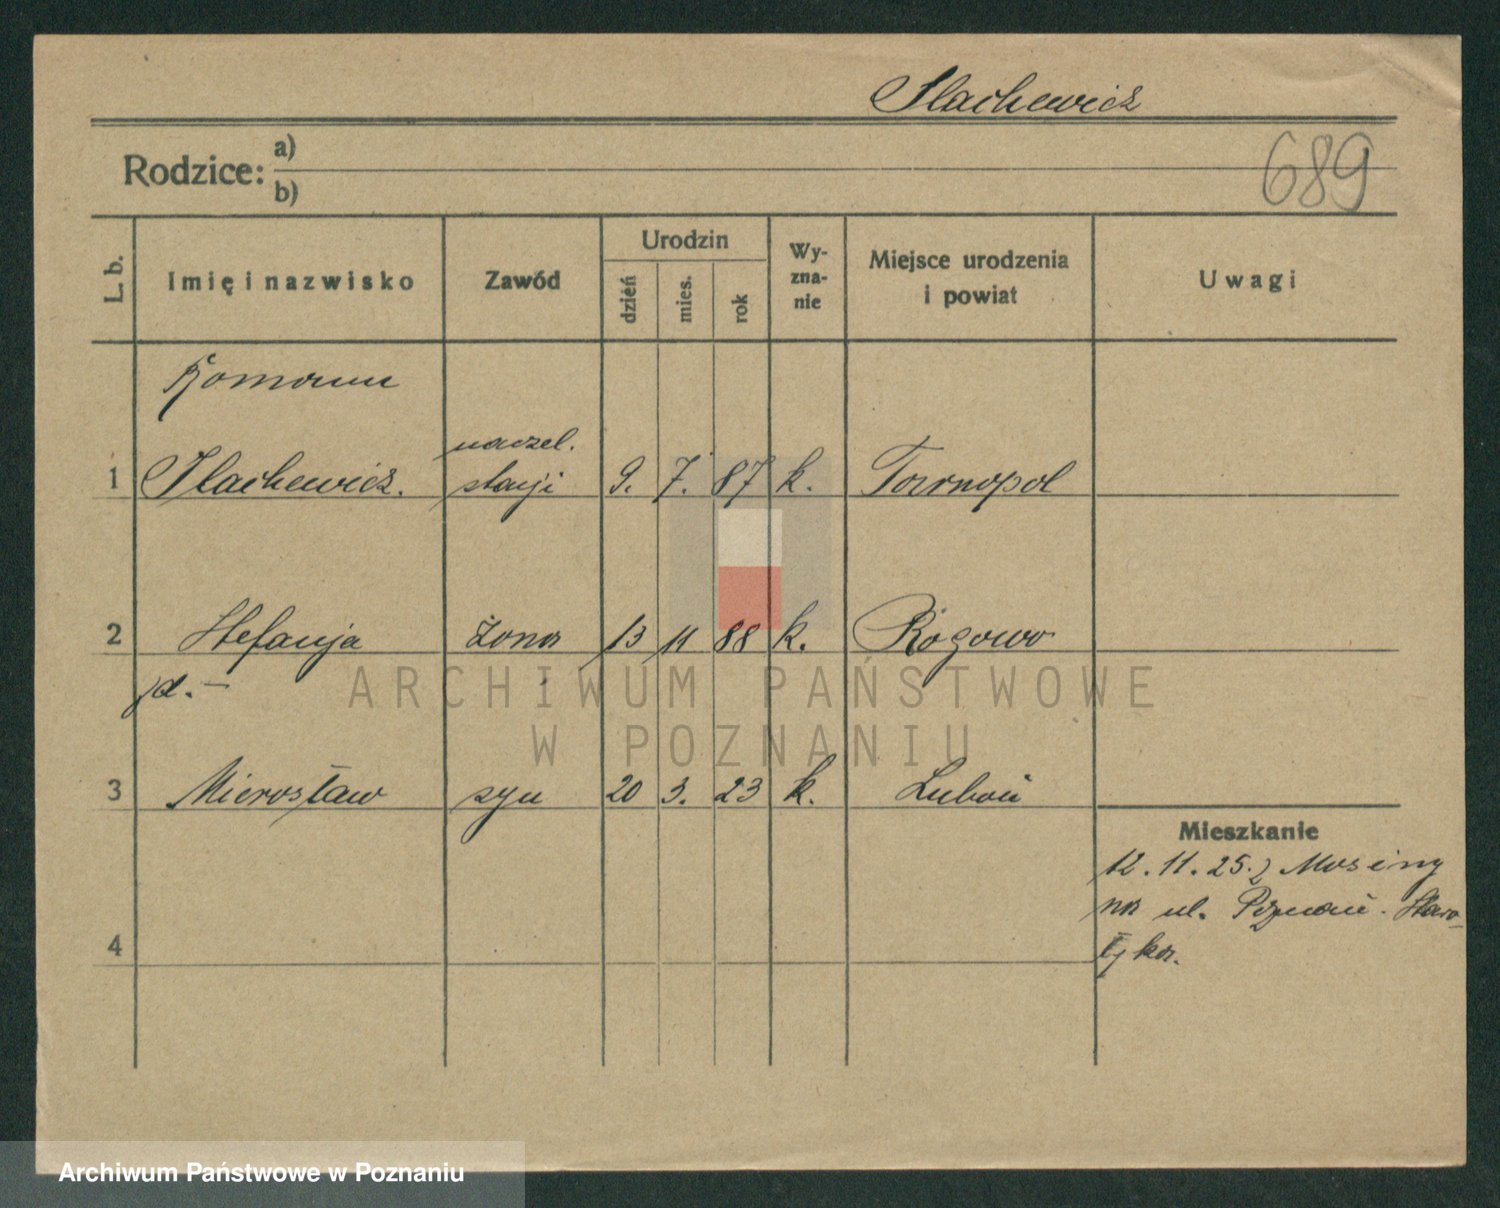 Stachewicz
689
Rodzice: a)
b)
L. b.
Imię i nazwisko
Zawód
Urodzin
dzień
mies.
rok
Wy-
zna-
nie
Miejsce urodzenia
i powiat
Uwagi
Roman
naczel.
1 Stachewicz. stacji 9. 7. 87 k. Tarnopol
2 Stefanja żona 13 11 88 k. Rogowo
jd. —
3 Mierosław syn 20 3. 23 k. Luboń
Mieszkanie
12. 11. 25. z Mosiny
na ul. Poznań. Staro-
łęka.
4
ARCHIWUM PAŃSTWOWE
W POZNANIU
Archiwum Państwowe w Poznaniu